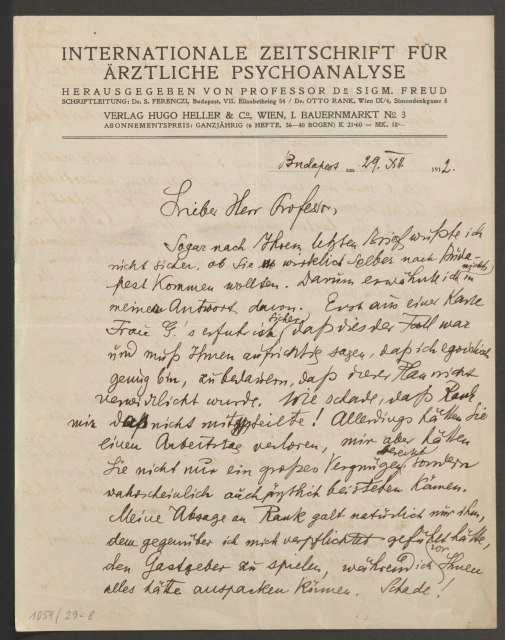 INTERNATIONALE ZEITSCHRIFT FÜR
ÄRZTLICHE PSYCHOANALYSE
HERAUSGEGEBEN VON PROFESSOR DR SIGM. FREUD
SCHRIFTLEITUNG: Dr. S. FERENCZI, Budapest, VII. Elisabethring 54 / Dr. OTTO RANK, Wien IX/4, Simondenkgasse 8
VERLAG HUGO HELLER & Co, WIEN, I. BAUERNMARKT No 3
ABONNEMENTSPREIS: GANZJÄHRIG (6 HEFTE, 36—40 BOGEN) K 21·60 = MK. 18·—
Budapest am 29. XII. 1912.
Lieber Herr Professor,
Sogar nach Ihrem letzten Brief wußte ich
nicht sicher, ob Sie wirklich selber nach Buda-
pest kommen wollten. Darum erwähnte ich nichts in
meinen Antwort davon. Erst aus einer Karte
Frau G.'s erfuhr ich sicher, daß dies der Fall war
und muß Ihnen aufrichtig sagen, daß ich egoistisch
genug bin, zu bedauern, daß dieser Plan nicht
verwirklicht wurde. Wie schade, daß Rank
mir das nicht mitteilte! Allerdings hätten Sie
einen Arbeitstag verloren, mir aber hätten
Sie nicht nur ein großes Vergnügen bereitet, sondern
wahrscheinlich auch ärztlich beistehen können.
Meine Absage an Rank galt natürlich nur ihm,
dem gegenüber ich mich verpflichtet gefühlt hätte,
den Gastgeber zu spielen, während ich vor Ihnen
alles hätte auspacken können. Schade!
1054/29-8